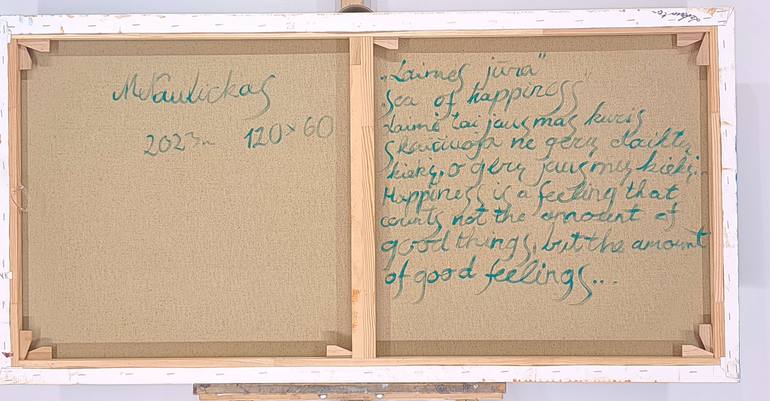 M. Naulickas
2023m 120×60
„Laimės jūra"
Sea of happiness
Laimė tai jausmas kuris
skaičiuoja ne gerų daiktų
kiekį, o gerų jausmų kiekį...
Happiness is a feeling that
counts not the amount of
good things, but the amount
of good feelings...